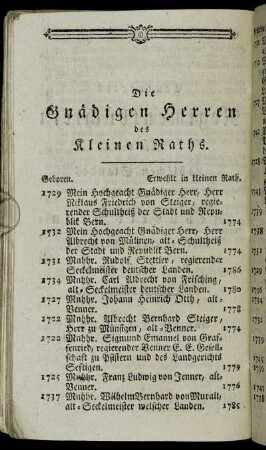 Die
Gnädigen Herren
des
Kleinen Raths.
Geboren. Erwehlt in kleinen Rath.
1729 Mein Hochgeacht Gnädiger Herr, Herr
Niklaus Friedrich von Steiger, regie-
render Schultheiß der Stadt und Repu-
blik Bern. 1774
1732 Mein Hochgeacht Gnädiger Herr, Herr
Albrecht von Mülinen, alt-Schultheiß
der Stadt und Republik Bern. 1774
1731 Mnhhr. Rudolf Stettler, regierender
Seckelmeister deutscher Landen. 1786
1734 Mnhhr. Carl Albrecht von Frisching,
alt-Seckelmeister deutscher Landen. 1780
1727 Mnhhr. Johann Heinrich Otth, alt-
Venner. 1778
1722 Mnhhr. Albrecht Bernhard Steiger,
Herr zu Münsigen, alt-Venner. 1774
1722 Mnhhr. Sigmund Emanuel von Graf-
fenried, regierender Venner E. E. Gesell-
schaft zu Pfistern und des Landgerichts
Seftigen. 1779
1725 Mnhhr. Franz Ludwig von Jenner, alt-
Venner. 1776
1737 Mnhhr. Wilhelm Bernhard von Muralt,
alt-Seckelmeister welscher Landen. 1785